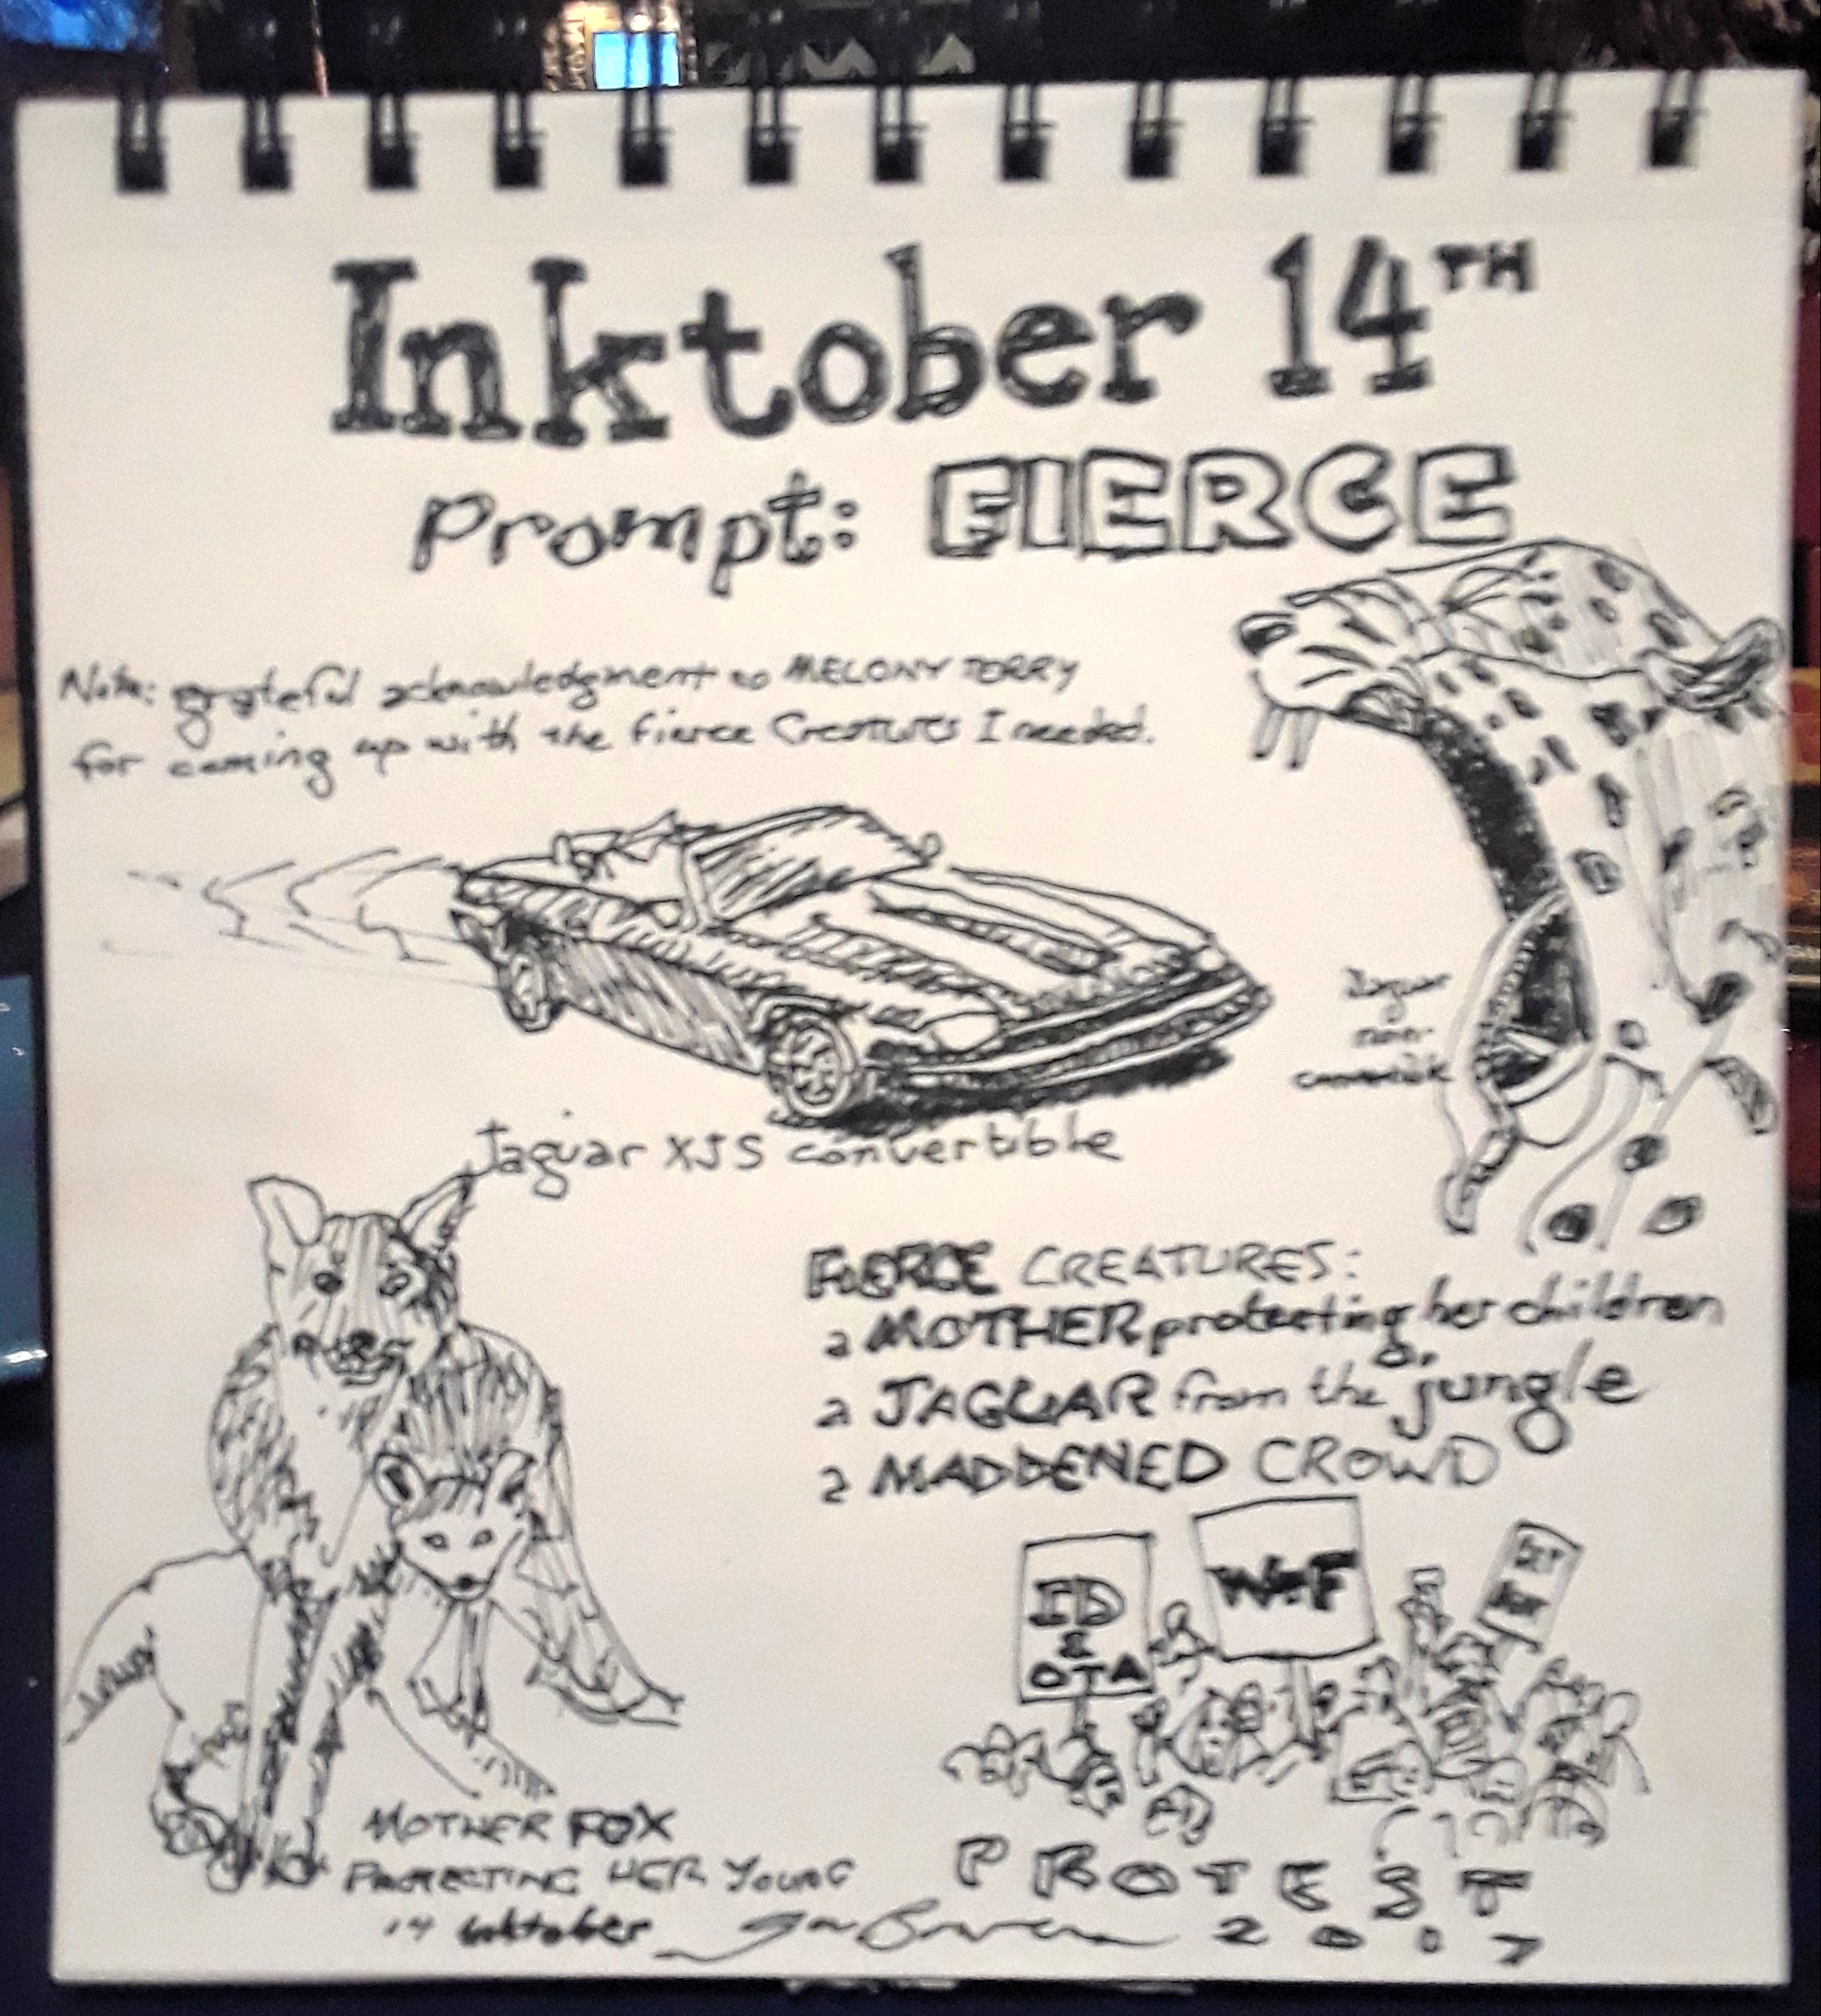 Inktober 14TH
Prompt: FIERCE
Note: grateful acknowledgment to MELONY TERRY
for coming up with the fierce Creatures I needed.
Jaguar
non-
Jaguar XJS convertible
FIERCE CREATURES:
a MOTHER protecting her children
a JAGUAR from the jungle
a MADDENED CROWD
ID
&
OTA
WTF
MOTHER FOX
PROTECTING HER YOUNG
PROTEST
14 Inktober
2017